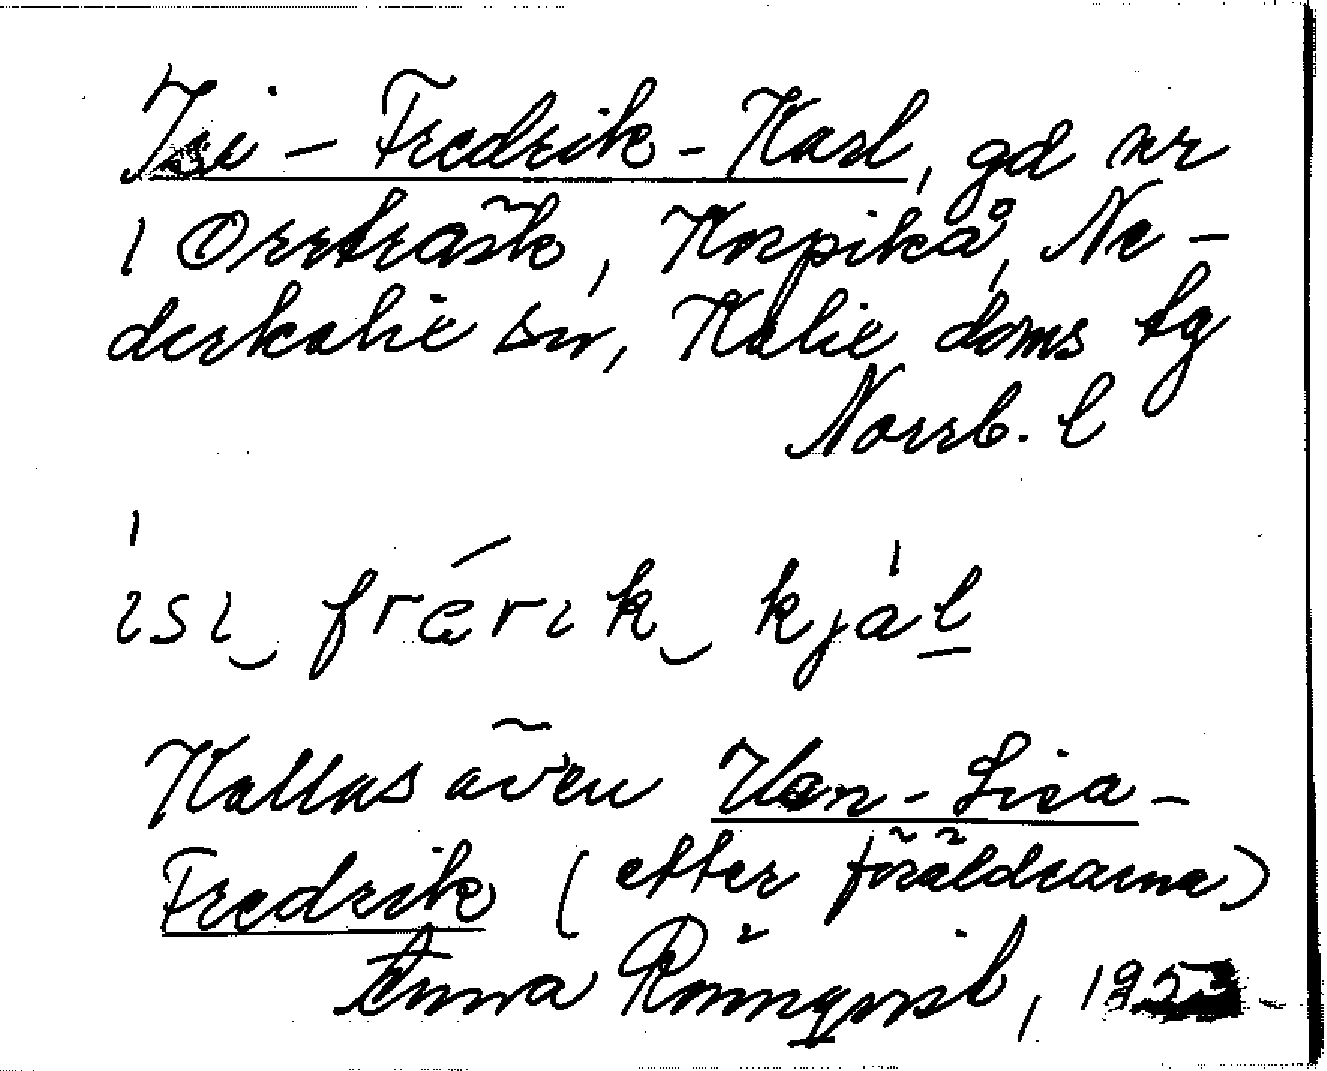 Isi-Fredrik-Karl, gd nr
1 Orrträsk, Korpikå, Ne-
derkalix sn, Kalix doms tg
Norrb. l
ısı‿frǽrık‿kjá̍l̲
Kallas även Kan-Lisa-
Fredrik (efter föräldrarna)
Anna Rönnqvist, 1953